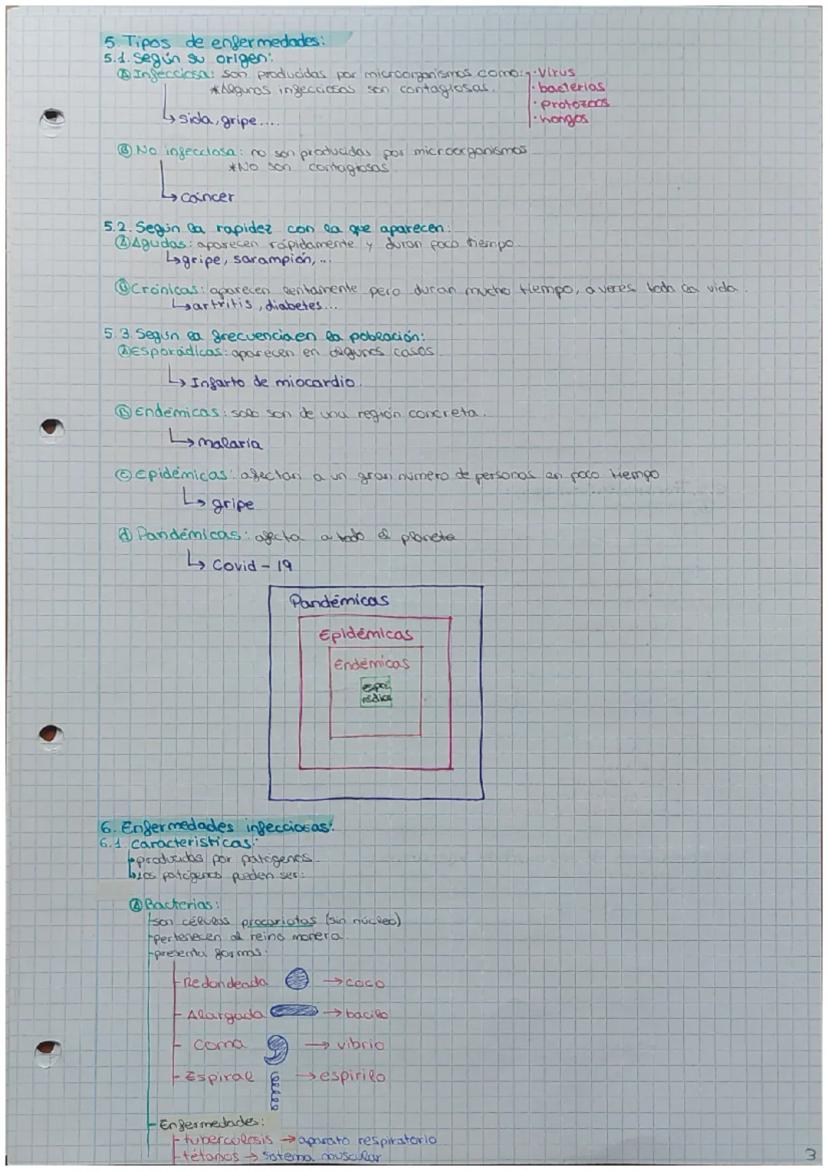 5. Tipos de enfermedades:
5.1. Según su origen:
ⓐ Infecciosa: son producidas por microorganismos como: · virus
*Algunas infecciosas son contagiosas. · bacterias
· protozoos
↳ sida, gripe.... · hongos
ⓑ No infecciosa: no son producidas por microorganismos
*No son contagiosas
↳ cáncer
5.2. Según la rapidez con la que aparecen:
ⓐ Agudas: aparecen rápidamente y duran poco tiempo.
↳ gripe, sarampión,...
ⓑ Crónicas: aparecen lentamente pero duran mucho tiempo, a veces toda la vida.
↳ artritis, diabetes...
5.3. Según la frecuencia en la población:
ⓐ Esporádicas: aparecen en algunos casos.
↳ Infarto de miocardio.
ⓑ Endémicas: solo son de una región concreta.
↳ malaria
ⓒ Epidémicas: afectan a un gran número de personas en poco tiempo
↳ gripe
ⓓ Pandémicas: afecta a todo el planeta
↳ Covid-19
Pandémicas
Epidémicas
Endémicas
espo
rádica
6. Enfermedades infecciosas:
6.1. características:
producidas por patógenos.
los patógenos pueden ser:
ⓐ Bacterias:
son células procariotas (sin núcleo)
pertenecen al reino monera.
presenta formas:
- Redondeada → coco
- Alargada → bacilo
- Coma → vibrio
- Espiral → espirilo
- Enfermedades:
- tuberculosis → aparato respiratorio
- tétanos → sistema muscular
3